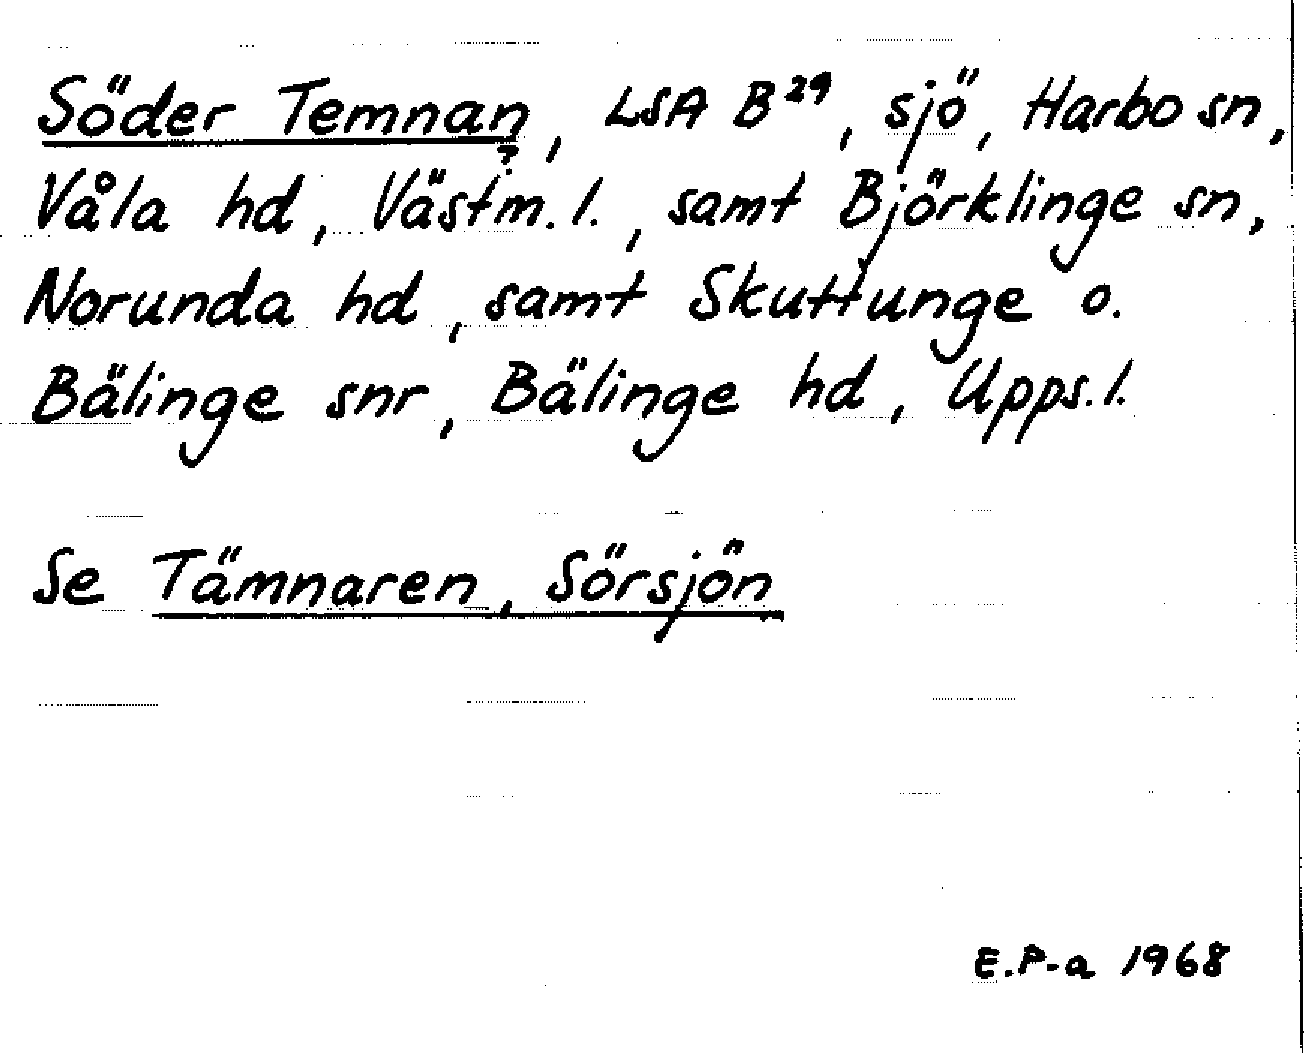 Söder Temnan, LSA B²⁹, sjö, Harbo sn,
?
Våla hd, Västm. l., samt Björklinge sn,
Norunda hd, samt Skuttunge o.
Bälinge snr, Bälinge hd, Upps. l.
Se Tämnaren, Sörsjön
E.P-a 1968